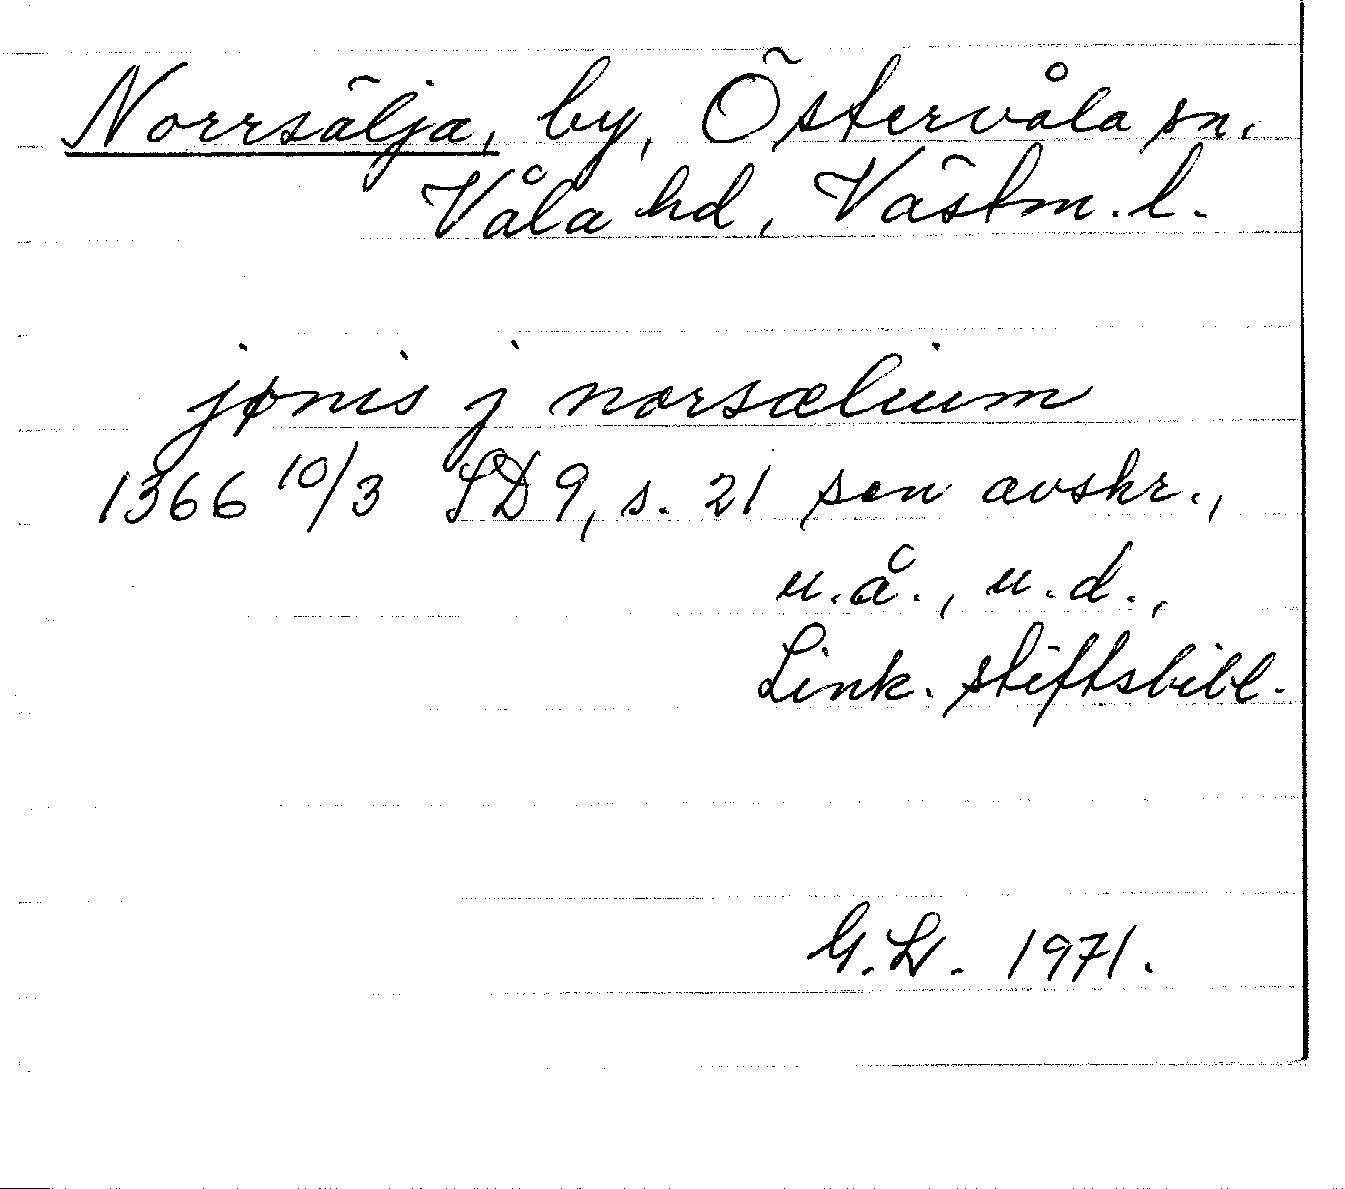 Norrsälja, by, Östervåla sn.
Våla hd, Västm. l.
jønis j norsælium
1366 10/3 SD 9, s. 21 sen avskr.,
u.å., u.d.,
Link. stiftsbibl.
G.W. 1971.